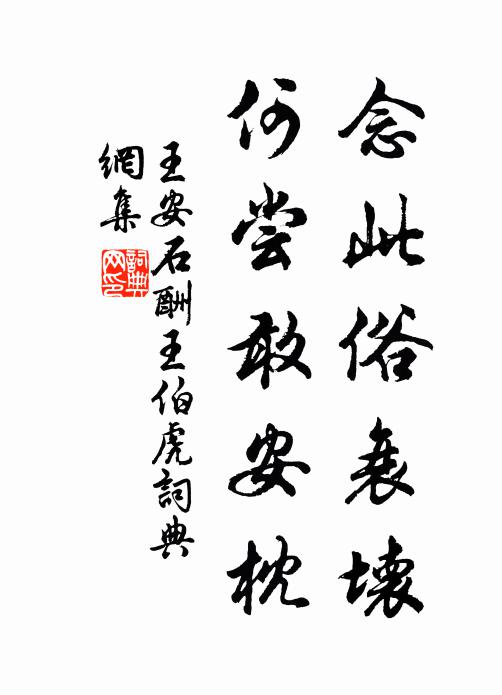 念此俗衰壞
何尝敢安枕
王安石酬王伯虎詞典
網集
詞典網印